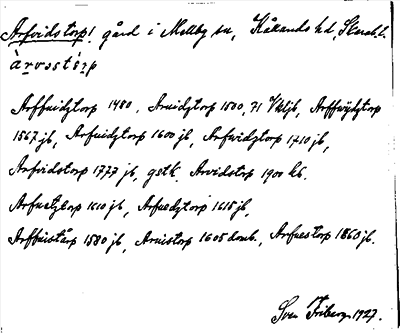 Arfvidstorp! gård i Mellby sn, Kållands hd, Skarab. l.
à rvostérp
Arffuidztorp 1480. Aruidztorp 1500, 71 Vkljb, Arffwidztorp
1567 jb, Arfuidztorp 1600 jb, Arfwidztorp 1710 jb,
Arfvidstorp 1777 jb, gstk. Arvidstorp 1900 kb.
Arfuetztorp 1610 jb, Arfuedztorp 1615 jb,
Arffuistårp 1580 jb, Aruistorp 1605 domb., Arfvestorp 1860 jb.
Sven Friberg 1927.